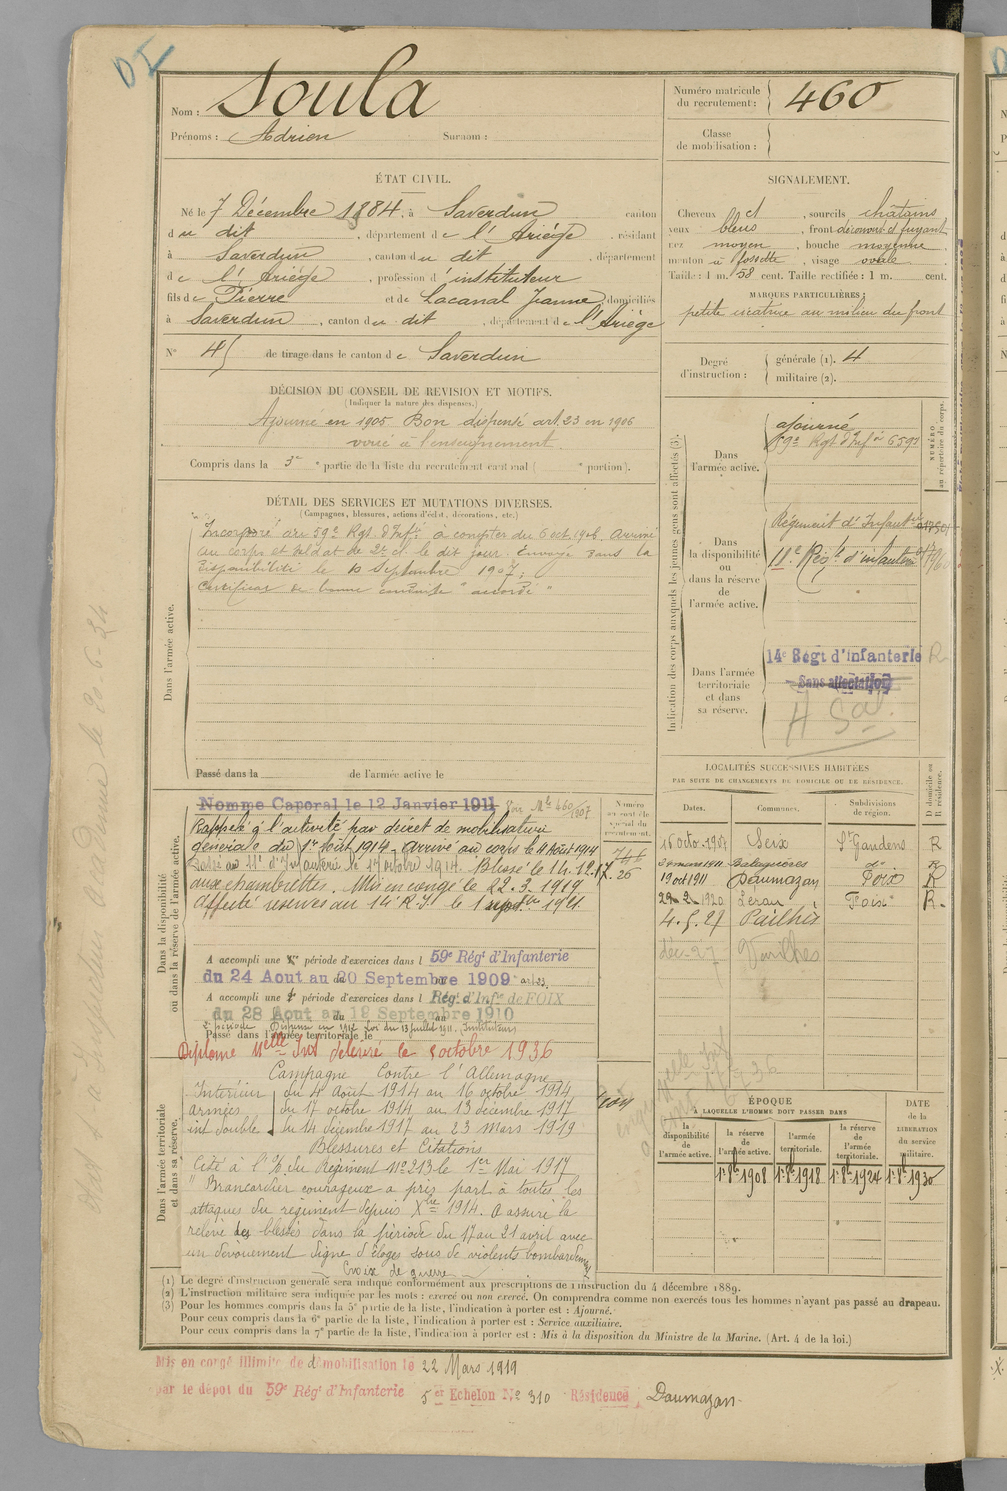 DI
Nom : Soula
Prénoms : Adrien Surnom :
Numéro matricule du recrutement : 460
Classe de mobilisation :
ÉTAT CIVIL.
Né le 7 Décembre 1884, à Saverdun canton
du dit, département de l'Ariège, résidant
à Saverdun, canton du dit, département
de l'Ariège, profession d'instituteur
fils de Pierre et de Lacanal Jeanne, domiciliés
à Saverdun, canton du dit, département de l'Ariège
N° 45 de tirage dans le canton de Saverdun
SIGNALEMENT.
Cheveux ct, sourcils châtains
yeux bleus, front découvert fuyant
nez moyen, bouche moyenne
menton à fossette, visage ovale
Taille : 1 m. 58 cent. Taille rectifiée : 1 m. cent.
MARQUES PARTICULIÈRES :
petite cicatrice au milieu du front
Degré d'instruction :
générale (1). 4
militaire (2).
DÉCISION DU CONSEIL DE REVISION ET MOTIFS.
(Indiquer la nature des dispenses.)
Ajourné en 1905. Bon dispensé art. 23 en 1906
versé à l'enseignement
Compris dans la 3e partie de la liste du recrutement cantonal ( e portion).
DÉTAIL DES SERVICES ET MUTATIONS DIVERSES.
(Campagnes, blessures, actions d'éclat, décorations, etc.)
Dans l'armée active.
Incorporé au 59e Rgt. d'Inf. à compter du 6 oct. 1906. Arrivé
au corps et soldat de 2e cl. le dit jour. Envoyé dans la
disponibilité le 10 Septembre 1907;
Certificat de bonne conduite "accordé"
Passé dans la de l'armée active le
Indication des corps auxquels les jeunes gens sont affectés (3).
NUMÉRO au répertoire du corps.
Dans l'armée active.
ajourné
59e Rgt d'Inf.
Dans la disponibilité ou dans la réserve de l'armée active.
Régiment d'Infanterie
11e Régt d'infanterie
Dans l'armée territoriale et dans sa réserve.
14e Régt d'infanterie R
Sans affectation
LOCALITÉS SUCCESSIVES HABITÉES
PAR SUITE DE CHANGEMENTS DE DOMICILE OU DE RÉSIDENCE.
Dates. Communes. Subdivisions de région. D domicile ou R résidence.
Seix St Gaudens R
Balaguères do R
19 oct 1911 Daumazan Foix R
1920 Léran Foix R.
Pailhès
déc-27 Varilhes
Dans la disponibilité ou dans la réserve de l'armée active.
Nommé Caporal le 12 Janvier 1911
Rappelé à l'activité par décret de mobilisation
générale du 1er Août 1914. Arrivé au corps le 4 Août 1914
Passé au 11e d'Infanterie le 17 octobre 1914. Blessé le 14.12.17
aux chambrettes. Mis en congé le 22-3-1919
A accompli une 1e période d'exercices dans l 59e Régt d'Infanterie
du 24 Aout au 20 Septembre 1909
A accompli une 2e période d'exercices dans l Régt d'Infie de FOIX
du 28 Aout au 1910
2e période Dispensé en 1912 loi du 13 juillet 1911. Instituteurs
Passé dans l'armée territoriale le
Diplome délivré le 5 octobre 1936
Dans l'armée territoriale et dans sa réserve.
Campagne Contre l'Allemagne
Intérieur du 4 août 1914 au 16 octobre 1914
armées du 17 octobre 1914 au 13 décembre 1917
int. double du 14 décembre 1917 au 23 Mars 1919
Blessures et Citations
Cité à l'O. du Régiment N° 213 le 1er Mai 1917
"Brancardier courageux a pris part à toutes les
attaques du régiment depuis Xbre 1914. A assuré la
relève des blessés dans la période du 17 au 21 avril avec
un dévouement digne d'éloges sous de violents bombardements
Croix de guerre
ÉPOQUE
À LAQUELLE L'HOMME DOIT PASSER DANS
la disponibilité de l'armée active. la réserve de l'armée active. l'armée territoriale. la réserve de l'armée territoriale.
DATE de la LIBÉRATION du service militaire.
1er 8bre 1908 1er 8bre 1918 1er 8bre 1924 1er 8bre 1930
(1) Le degré d'instruction générale sera indiqué conformément aux prescriptions de l'instruction du 4 décembre 1889.
(2) L'instruction militaire sera indiquée par les mots : exercé ou non exercé. On comprendra comme non exercés tous les hommes n'ayant pas passé au drapeau.
(3) Pour les hommes compris dans la 5e partie de la liste, l'indication à porter est : Ajourné.
Pour ceux compris dans la 6e partie de la liste, l'indication à porter est : Service auxiliaire.
Pour ceux compris dans la 7e partie de la liste, l'indication à porter est : Mis à la disposition du Ministre de la Marine. (Art. 4 de la loi.)
Mis en congé illimité de démobilisation le 22 Mars 1919
par le dépôt du 59e Régt d'Infanterie 5e Echelon N° 310 Résidence Daumazan